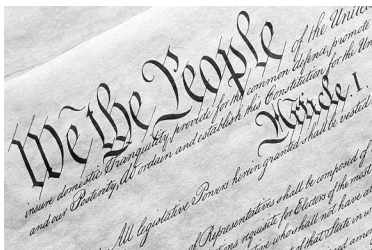 We the People of the United
insure domestic Tranquility, provide for the common defence, promote
and our Posterity, do ordain and establish this Constitution for the Uni
Article. I.
All legislative Powers herein granted shall be vested
of Representatives shall be composed of
requisite for Electors of the most
who shall not have a
of that State in w